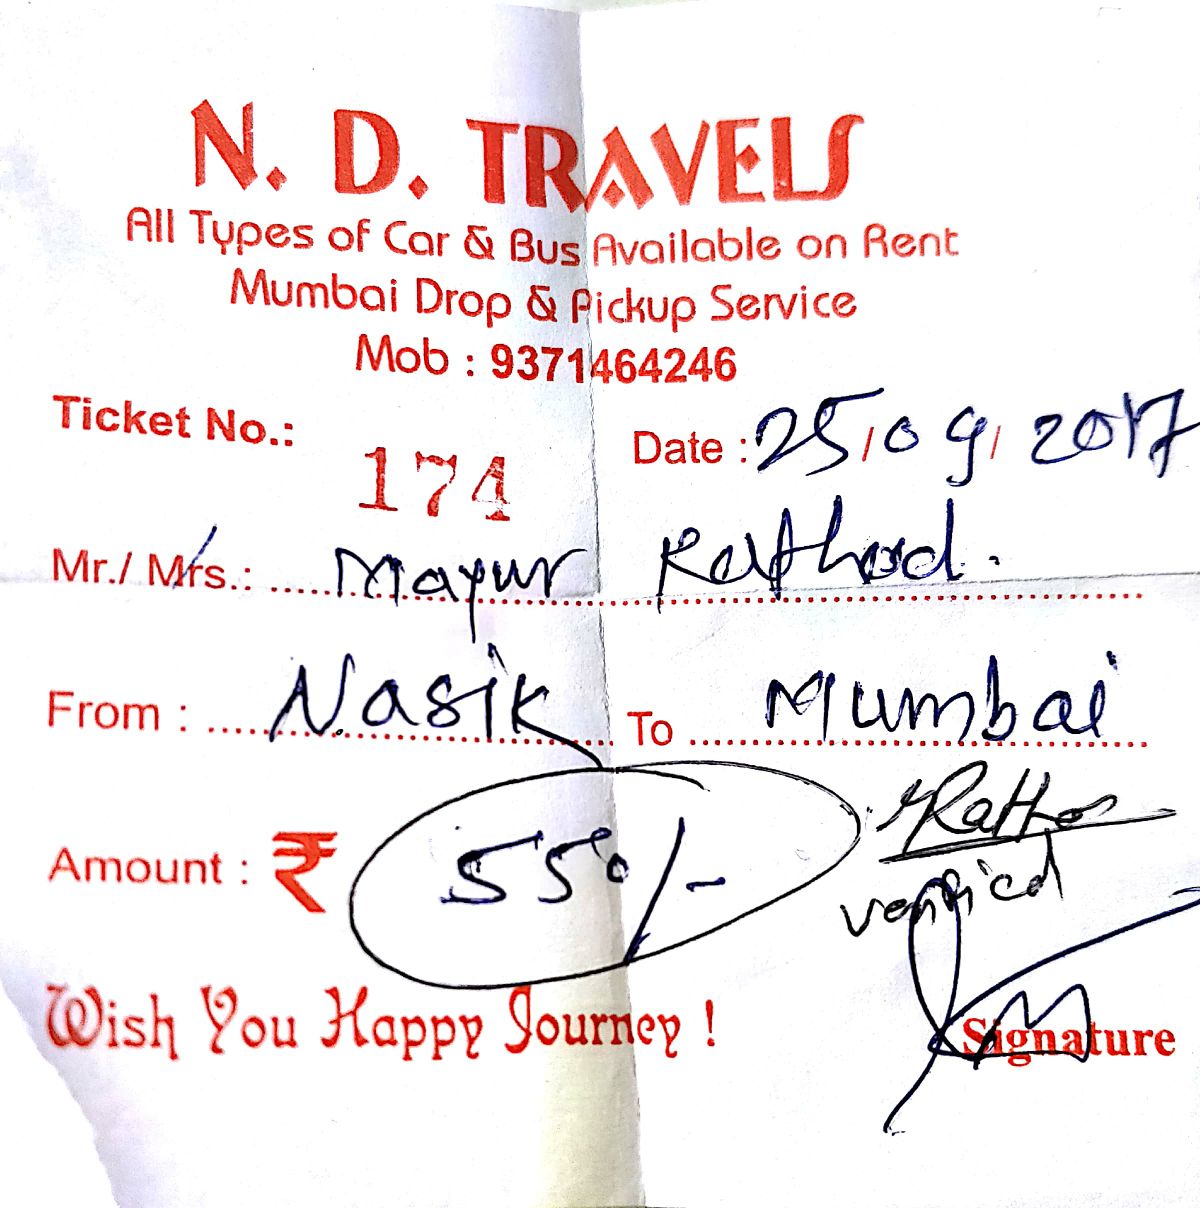 N. D. TRAVELS
All Types of Car & Bus Available on Rent
Mumbai Drop & Pickup Service
Mob : 9371464246
Ticket No.: 174 Date : 25/09/2017
Mr./ Mrs.: Mayur Rathod.
From : Nasik To Mumbai
Amount : ₹ 550/-
verified
Wish You Happy Journey !
Signature